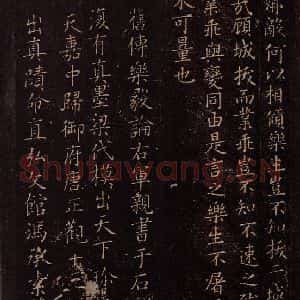 鄰敵何以相傾樂生豈不知拔二城
哉顧城拔而業乖豈不知不速之致
業乖與變同由是言之樂生不屠
未可量也
舊傳樂毅論右軍親書于石
復有真墨梁代模出天下珍
天嘉中歸御府唐正觀十
出真蹟命直弘文館馮承素
Shufawang.CN